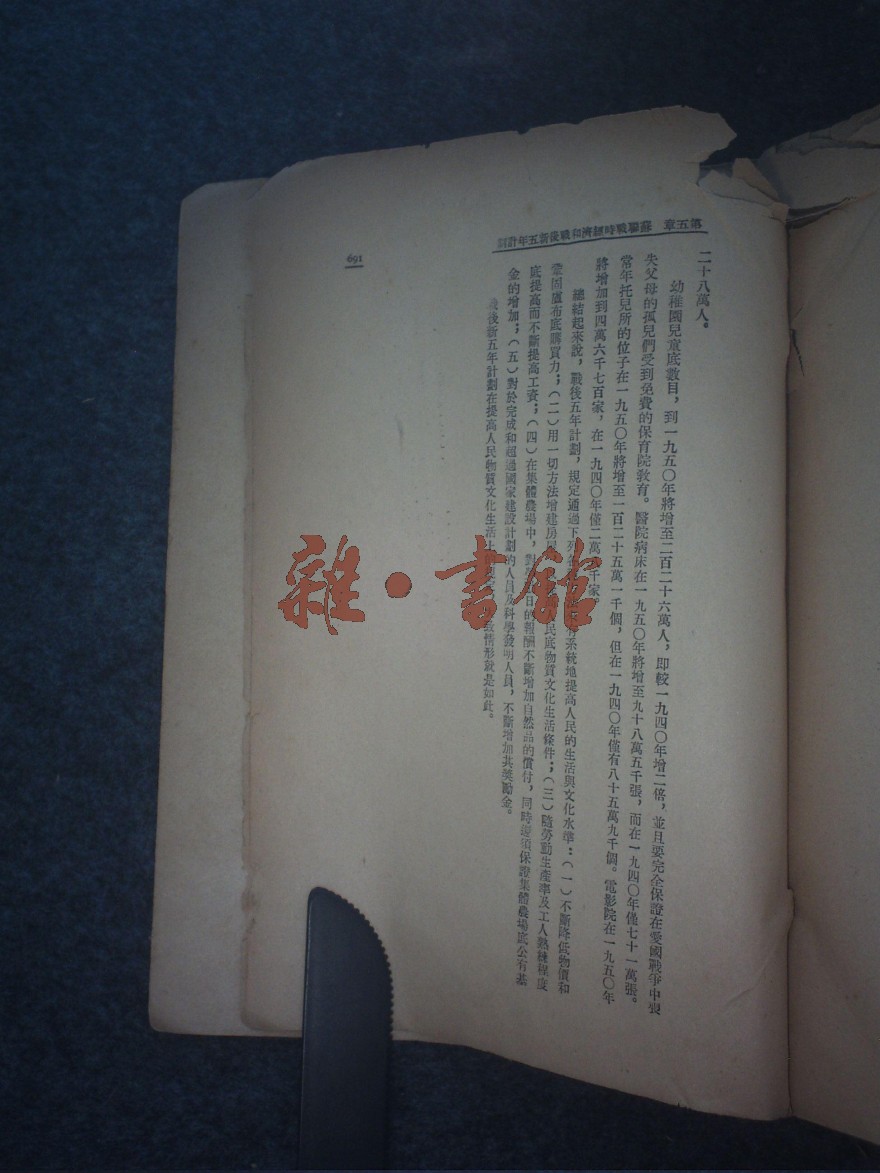 第五章 蘇聯戰時經濟和戰後新五年計劃
二十八萬人。
幼稚園兒童底數目，到一九五〇年將增至二百二十六萬人，即較一九四〇年增二倍，並且要完全保證在愛國戰爭中喪
失父母的孤兒們受到免費的保育院教育。醫院病床在一九五〇年將增至九十八萬五千張，而在一九四〇年僅七十一萬張。
常年托兒所的位子在一九五〇年將增至一百二十五萬一千個，但在一九四〇年僅有八十五萬九千個。電影院在一九五〇年
將增加到四萬六千七百家，在一九四〇年僅二萬八千家。
總結起來說，戰後五年計劃，規定通過下列 系統地提高人民的生活與文化水準：（一）不斷降低物價和
鞏固盧布底購買力；（二）用一切方法增建房屋 民底物質文化生活條件；（三）隨勞動生產率及工人熟練程度
底提高而不斷提高工資；（四）在集體農場中，對勞 日的報酬不斷增加自然品的償付，同時還須保證集體農場底公有基
金的增加；（五）對於完成和超過國家建設計劃的人員及科學發明人員，不斷增加其獎勵金。
戰後新五年計劃在提高人民物質文化生活上 致情形就是如此。
691
雜·書館